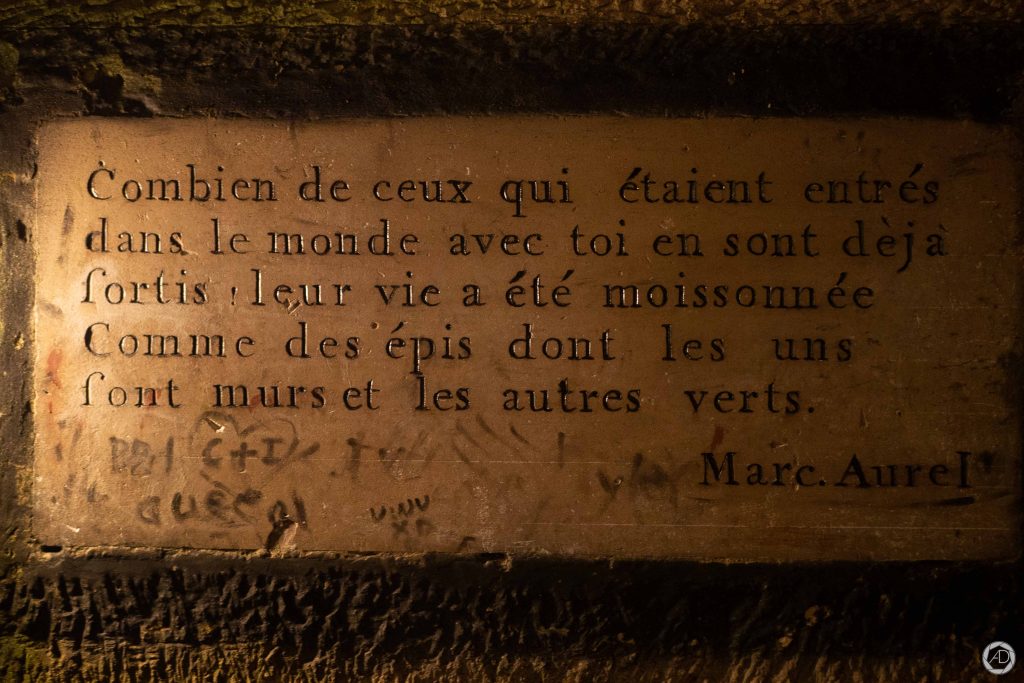 Combien de ceux qui étaient entrés
dans le monde avec toi en sont dèjà
ſortis ! leur vie a été moissonnée
Comme des épis dont les uns
ſont murs et les autres verts.
Marc. Aurel
C+I
AD